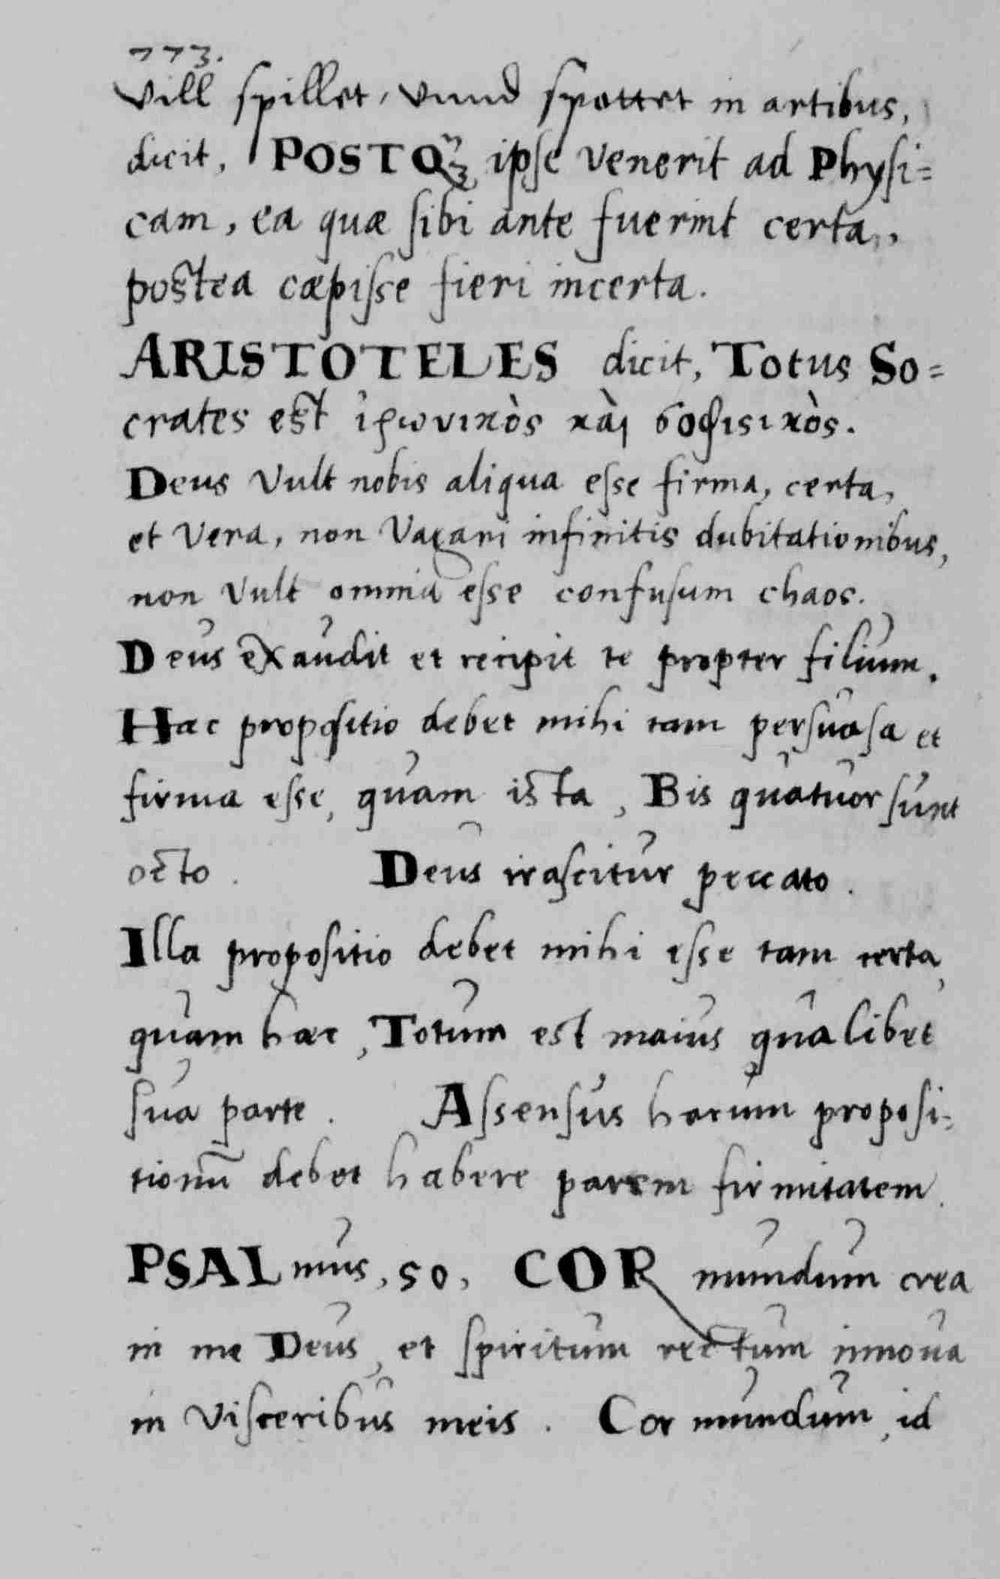 773.
vill spillet, vnnd spottet in artibus,
dicit, POSTQꝫ ipse venerit ad Physi=
cam, ea quæ sibi ante fuerint certa,
postea cæpisse fieri incerta.
ARISTOTELES dicit, Totus So=
crates est ἰρωνικὸς καὶ σοφιστικὸς.
Deus vult nobis aliqua esse firma, certa,
et vera, non vagari infinitis dubitationibus,
non vult omnia esse confusum chaos.
Deus exaudit et recipit te propter filium.
Hæc propositio debet mihi tam persuasa et
firma esse, quam ista, Bis quatuor sunt
octo. Deus irascitur peccato.
Illa propositio debet mihi esse tam certa,
quam hæc, Totum est maius qualibet
sua parte. Assensus harum proposi=
tionū debet habere parem firmitatem.
PSALmus, 50, COR mundum crea
in me Deus, et spiritum rectum innova
in visceribus meis. Cor mundum, id